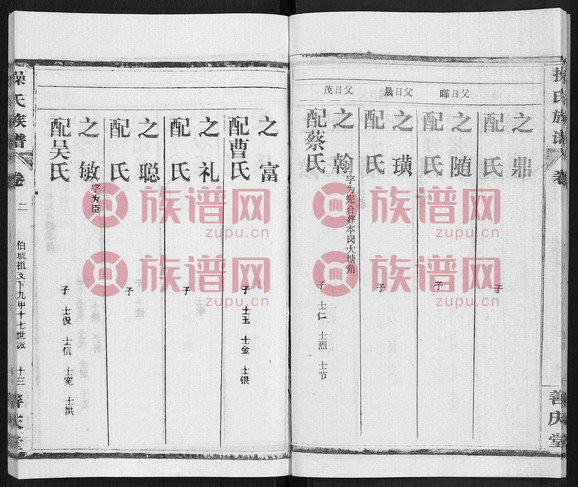 操氏族谱
卷
善庆堂
父曰晖
之鼎
配氏
子
之随
配氏
子
父曰晨
之璜
配氏
子
父曰茂
之翰
字为宪合葬本岗大塘角
配蔡氏
子 士仁 士烈 士节
之富
配曹氏
子 士玉 士金 士银
之礼
配氏
子
之聪
配氏
子
之敏
字为臣
配吴氏
子 士俊 士信 士宽 士洪
操氏族谱
卷二
十三
善庆堂
族谱网
zupu.cn
族谱网
zupu.cn
族谱网
zupu.cn
族谱网
zupu.cn